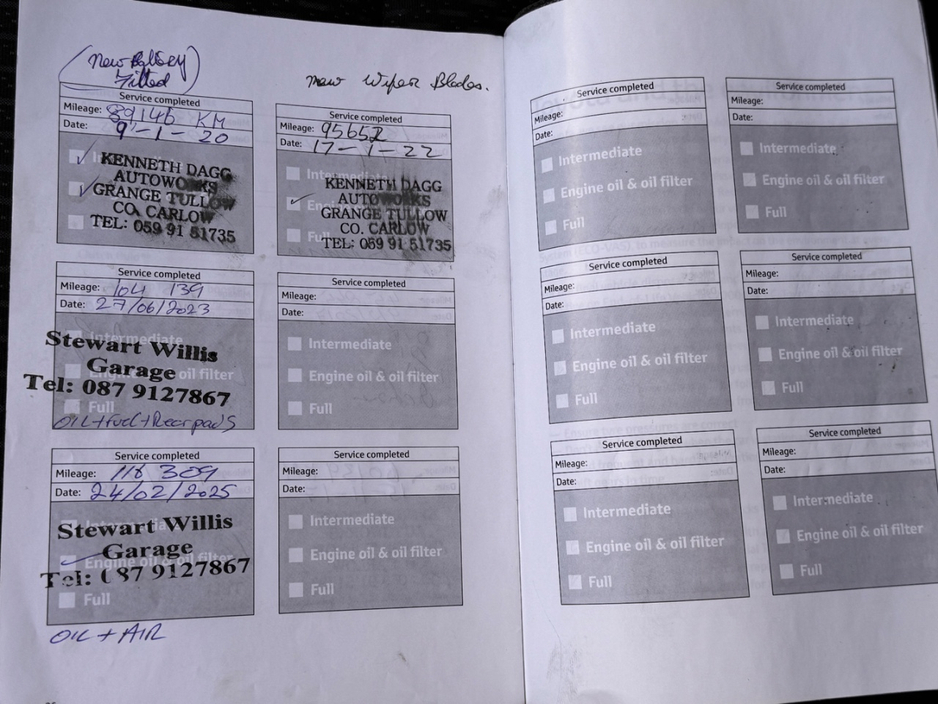 (New Battery)
Fitted
New Wiper Blades.
Service completed
Mileage: 89146 KM
Date: 9-1-20
KENNETH DAGG
AUTOWORKS
GRANGE TULLOW
CO. CARLOW
TEL: 059 91 51735
Service completed
Mileage: 95652
Date: 17-1-22
Intermediate
KENNETH DAGG
AUTOWORKS
GRANGE TULLOW
Full
CO. CARLOW
TEL: 059 91 51735
Service completed
Mileage: 104 139
Date: 27/06/2023
Intermediate
Stewart Willis
Garage
oil filter
Tel: 087 9127867
Full
OIL + Fuel + Rear pads
Service completed
Mileage:
Date:
Intermediate
Engine oil & oil filter
Full
Service completed
Mileage: 118 309
Date: 24/02/2025
Stewart Willis
Garage
Engine oil & oil filter
Tel: 087 9127867
Full
OIL + AIR
Service completed
Mileage:
Date:
Intermediate
Engine oil & oil filter
Full
Service completed
Mileage:
Date:
Intermediate
Engine oil & oil filter
Full
Service completed
Mileage:
Date:
Intermediate
Engine oil & oil filter
Full
Service completed
Mileage:
Date:
Intermediate
Engine oil & oil filter
Full
Service completed
Mileage:
Date:
Intermediate
Engine oil & oil filter
Full
Service completed
Mileage:
Date:
Intermediate
Engine oil & oil filter
Full
Service completed
Mileage:
Date:
Intermediate
Engine oil & oil filter
Full